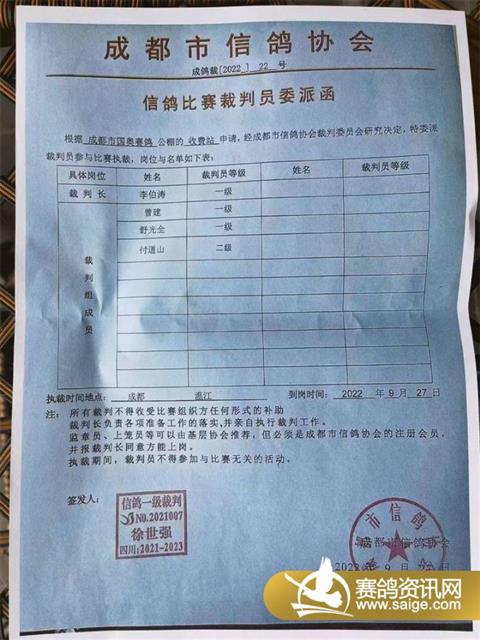 成都市信鸽协会
成鸽裁[2022 ] 22 号
信鸽比赛裁判员委派函
根据 成都市国奥赛鸽 公棚的 收费站 申请,经成都市信鸽协会裁判委员会研究决定,特委派
裁判员参与比赛执裁,岗位与名单如下表:
具体岗位 姓名 裁判员等级 姓名 裁判员等级
裁判长 李伯涛 一级
曾建 一级
舒光全 一级
付道山 二级
裁判组成员
执裁时间地点: 成都 温江 到岗时间: 2022 年 9 月 27 日
注: 所有裁判不得收受比赛组织方任何形式的补助
裁判长负责各项准备工作的落实,并亲自执行裁判工作。
监章员、上笼员等可以由基层协会推荐,但必须是成都市信鸽协会的注册会员,
并报裁判长同意方能上岗。
执裁期间,裁判员不得参加与比赛无关的活动。
签发人:
信鸽一级裁判
NO.2021007
徐世强
四川:2021-2023
成都市信鸽协会
2022年 9 月
赛鸽资讯网
www.saige.com